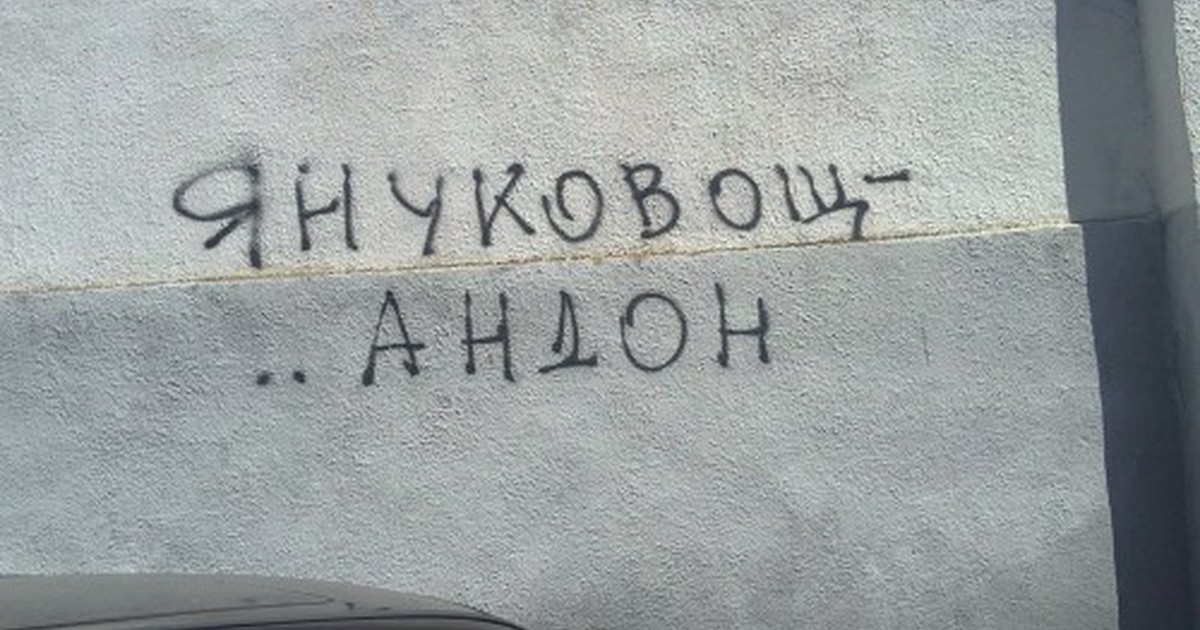 ЯНУКОВОЩ-
..АНДОН